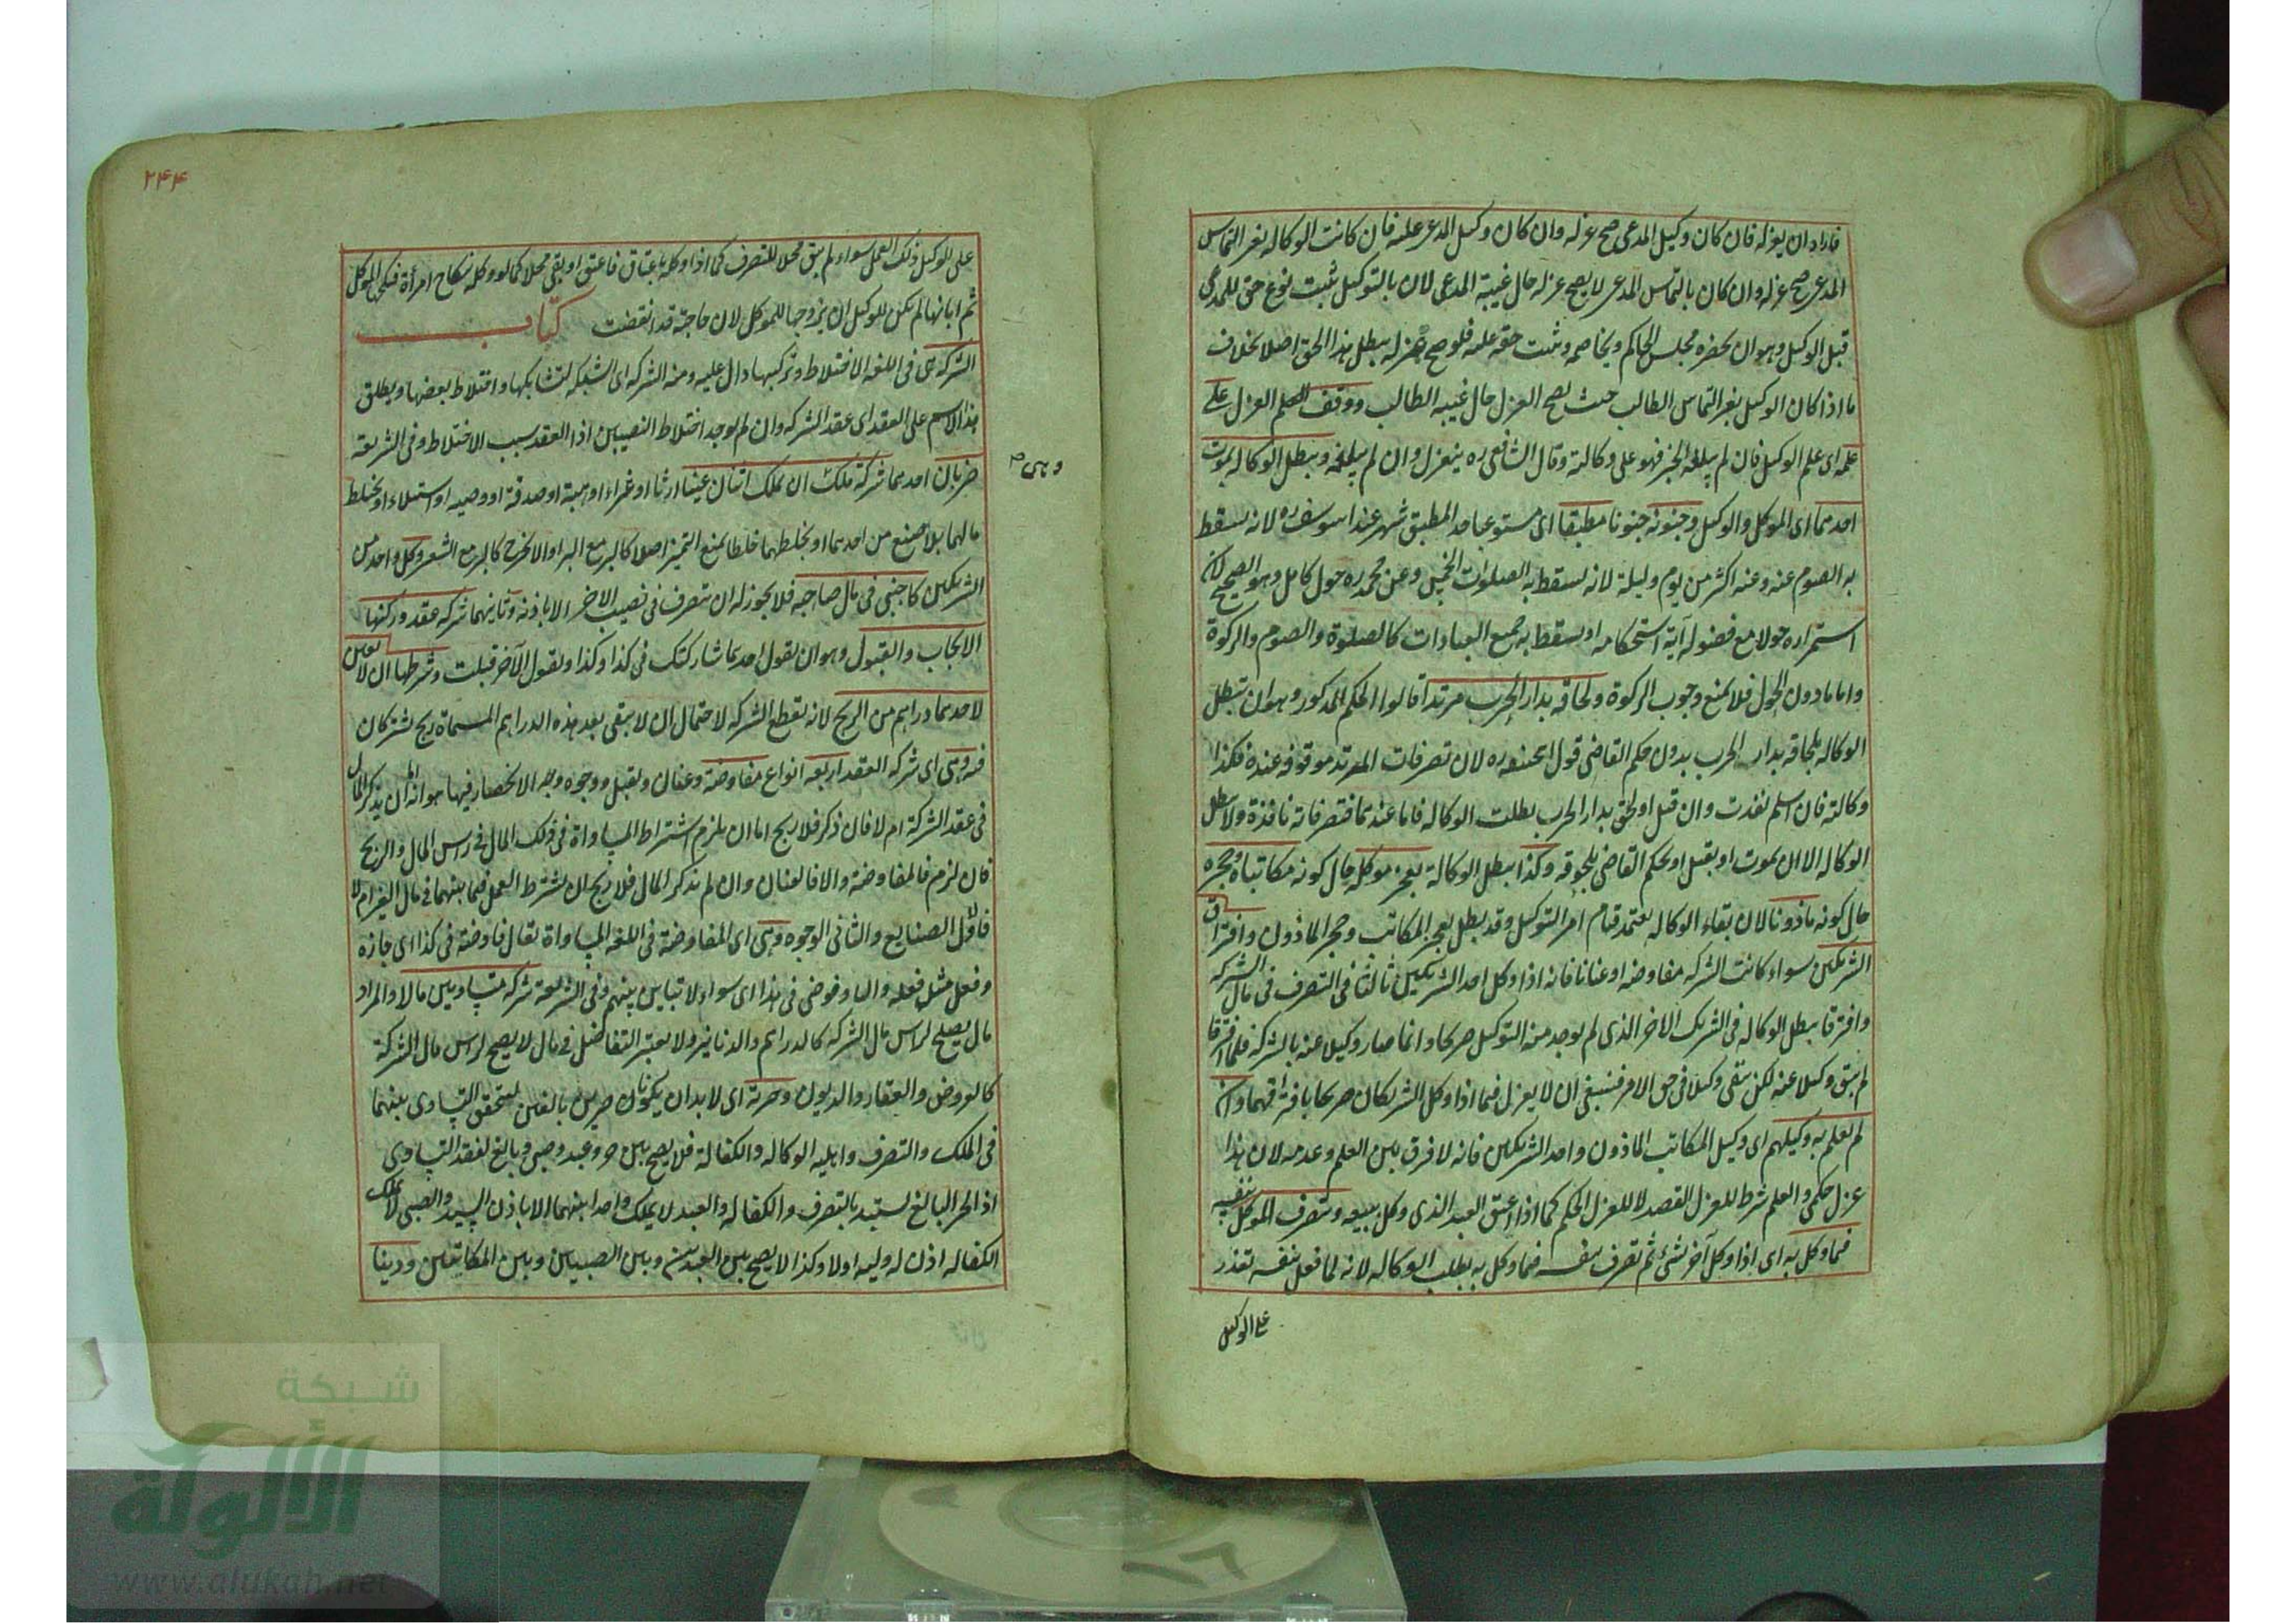 فاراد ان يعزله فان كان وكيل المدعى صح عزله وان كان وكيل المدعى عليه فان كانت الوكالة بغير التماس
المدعى صح عزله وان كان بالتماس المدعى لا يصح عزله حال غيبة المدعى لان بالتوكيل ثبت نوع حق للمدعى
قبل الوكيل وهو ان يحضره مجلس الحاكم ويخاصمه ويثبت حقه عليه فلو صح عزله يبطل هذا الحق اصلا بخلاف
ما اذا كان الوكيل بغير التماس الطالب حيث يصح العزل حال غيبة الطالب ووقف العزل على
علمه اى علم الوكيل فان لم يبلغه الخبر فهو على وكالته وقال الشافعى ره ينعزل وان لم يبلغه ويبطل الوكالة بموت
احدهما اى الموكل والوكيل وجنونه جنونا مطبقا اى مستوعبا حد المطبق شهر عند ابى يوسف ره لانه يسقط
به الصوم عنه وعنه اكثر من يوم وليلة لانه يسقط به الصلوات الخمس وعن محمد ره حول كامل وهو الصحيح لان
استمراره حولا مع فصوله آية استحكامه اذ يسقط به جميع العبادات كالصلوة والصوم والزكوة
واما ما دون الحول فلا يمنع وجوب الزكوة ولحاقه بدار الحرب مرتدا قالوا الحكم المذكور وهو ان تبطل
الوكالة بلحاقه بدار الحرب بدون حكم القاضى قول ابى حنيفة ره لان تصرفات المرتد موقوفة عنده فكذا
وكالته فان اسلم نفذت وان قتل او لحق بدار الحرب بطلت الوكالة فاما عندهما فتصرفاته نافذة ولا تبطل
الوكالة الا ان يموت او يقتل او يحكم القاضى بلحوقه وكذا يبطل الوكالة بعجز موكله حال كونه مكاتبا وحجره
حال كونه ماذونا لان بقاء الوكالة يعتمد قيام امر التوكيل وقد بطل بعجز المكاتب وحجر الماذون وافتراق
الشريكين سواء كانت الشركة مفاوضة او عنانا فانه اذا وكل احد الشريكين ثالثا فى التصرف فى مال الشركة
وافترقا يبطل الوكالة فى الشريك الاخر الذى لم يوجد منه التوكيل صريحا وانما صار وكيلا عنه بالشركة فلما افترقا
لم يبق وكيلا عنه لكن يبقى وكيلا فى حق الامر فينبغى ان لا يعزل فيما اذا وكل الشريكان صريحا بافتراقهما وان
لم يعلم به وكيلهم اى وكيل المكاتب الماذون واحد الشريكين فانه لا فرق بين العلم وعدمه لان هذا
عزل حكمى والعلم شرط للعزل القصد لا للعزل الحكم كما اذا اعتق العبد الذى وكل ببيعه وتصرف الموكل بنفسه
فيما وكل به اى اذا وكل آخر بشئ ثم تصرف بنفسه فيما وكل به بطلت الوكالة لانه لما فعل بنفسه تعذر
على الوكيل
٢٤٤
على الوكيل ذلك العمل سواء لم يبق محلا للتصرف كما اذا وكله باعتاق فاعتق او بقى محلا كما لو وكله بنكاح امرأة فنكح الموكل
ثم ابانها لم يكن للوكيل ان يزوجها للموكل لان حاجته قد انقضت كتاب
الشركة هى فى اللغة الاختلاط وتركيبها دال عليه ومنه الشركة اى الشبكة لتشابكها واختلاط بعضها ويطلق
هذا الاسم على العقد اى عقد الشركة وان لم يوجد اختلاط النصيبين اذا العقد سبب الاختلاط وفى الشريعة
وهى
ضربان احدهما شركة ملك ان يملك اثنان عينا ارثا او شراء او هبة او صدقة او وصية او استيلاء او يختلط
مالهما بلا صنع من احدهما او يخلطهما خلطا يمنع التميز اصلا كالبر مع البر او الا بحرج كالبر مع الشعير وكل واحد من
الشريكين كاجنبى فى مال صاحبه فلا يجوز له ان يتصرف فى نصيب الاخر الا باذنه وثانيهما شركة عقد وركنها
الايجاب والقبول وهو ان يقول احدهما شاركتك فى كذا وكذا ويقول الآخر قبلت وشرطها ان لا يعين
لاحدهما دراهم من الربح لانه يقطع الشركة لاحتمال ان لا يبقى بعد هذه الدراهم المسماة ربح يشتركان
فيه وهى اى شركة العقد اربعة انواع مفاوضة وعنان وتقبل ووجوه وجه الانحصار فيها هو انه اما ان يذكر المال
فى عقد الشركة ام لا فان ذكر فلا يخ اما ان يلزم اشتراط المساواة فى ذلك المال فى راس المال والربح
فان لزم فالمفاوضة والا فالعنان وان لم يذكر المال فلا يخ ان يشترط العمل فيما بينهما فى مال الغير ام لا
فالاول الصنايع والثانى الوجوه وهى اى المفاوضة فى اللغة المساواة يقال فاوضته فى كذا اى جازه
وفعل مثل فعله والناس فوضى فى هذا اى سواء لا تباين بينهم وفى الشريعة شركة متساويين مالا والمراد
مال يصلح لراس مال الشركة كالدراهم والدنانير ولا يعتبر التفاضل فى مال لا يصح لراس مال الشركة
كالعروض والعقار والديون وحرية اى لا بد ان يكونا حرين بالغين ليتحقق التساوى بينهما
فى الملك والتصرف واهلية الوكالة والكفالة فلا يصح بين حر وعبد وصبى وبالغ لفقد التساوى
اذ الحر البالغ يستبد بالتصرف والكفالة والعبد لا يملك واحدا بينهما الا باذن السيد والصبى لا يملك
الكفالة اذن له وليه اولا وكذا لا يصح بين العبدين وبين الصبيين وبين المكاتبين ودينا
شبكة
الألوكة
www.alukah.net